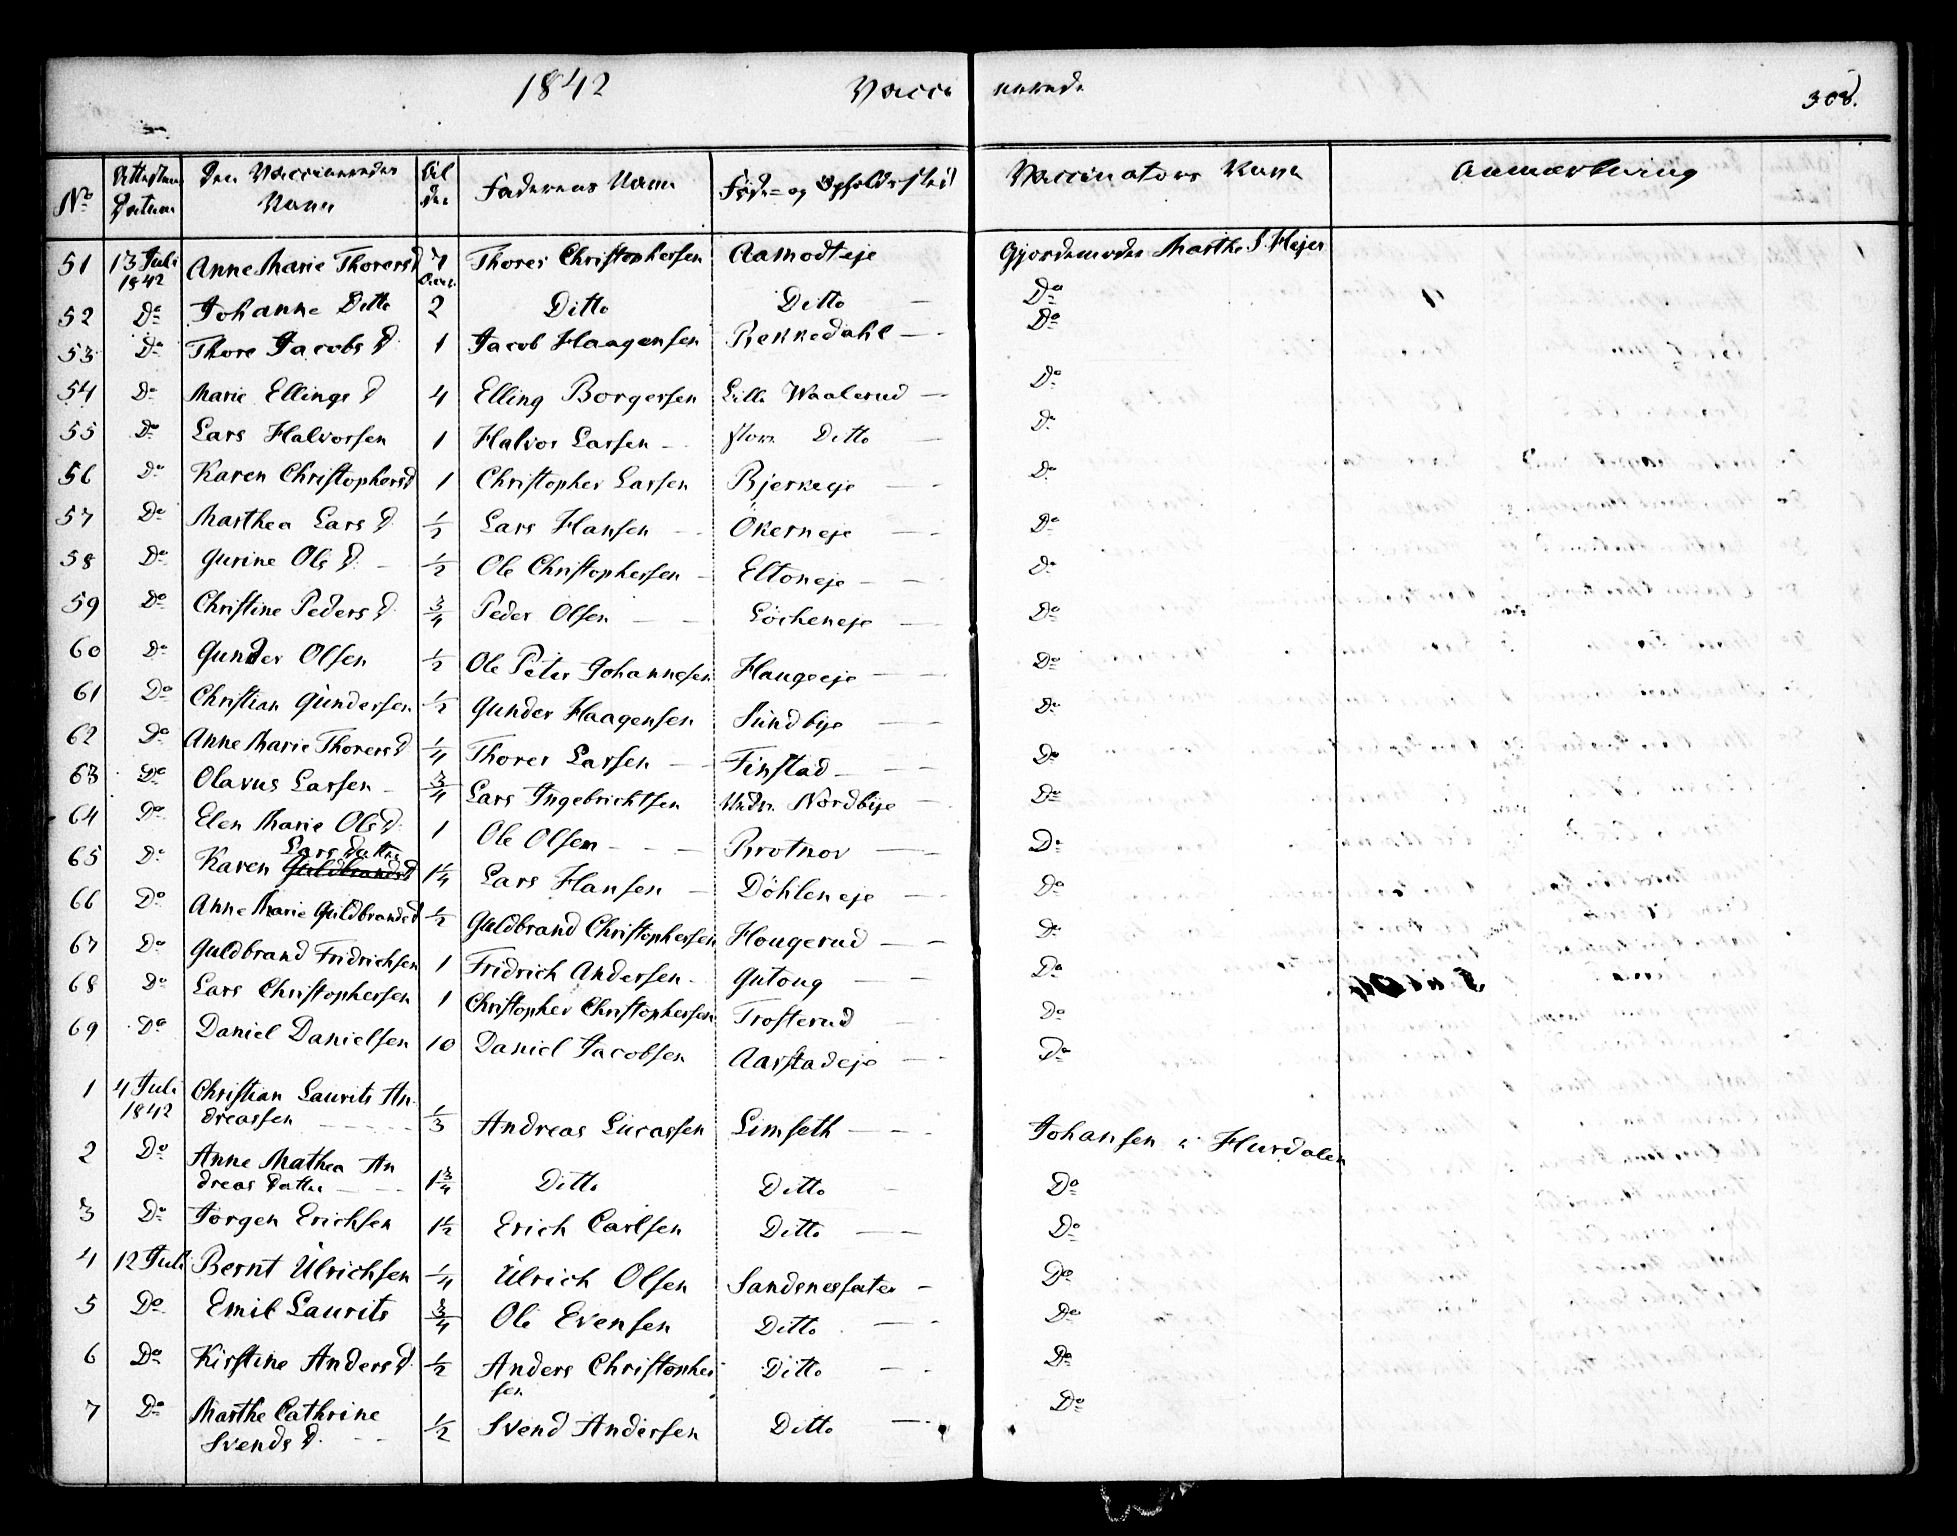 1842 Vacci nerede 308.
No Attestens Datum Den Vaccineredes Navn Al der Faderens Navn Føde- og Opholdssted Vaccinators Navn Anmærkning
51 13 Juli 1842 Anne Marie Thorersd 7 Thorer Christophersen Aamodteje Gjordemoder Marthe S. Hejer
52 Do Johanne Ditto 2 Ditto Ditto — Do
53 Do Thore Jacobs D. 1 Jacob Haagensen Rekkedahl — Do
54 Do Marie Ellings D 4 Elling Borgersen Lille Waalerud — Do
55 Do Lars Halvorsen 1 Halvor Larsen — Store Ditto — Do
56 Do Karen Christophersd 1 Christopher Larsen Bjerkeeje — Do
57 Do Marthea Lars D. 1/2 Lars Hansen — Økerneje — Do
58 Do Gurine Ols D. — 1/2 Ole Christophersen — Eltoneje — Do
59 Do Christine Peders D. 3/4 Peder Olsen — Löcheneje — Do
60 Do Gunder Olsen 1/2 Ole Peter Johannesen Haugeeje — Do
61 Do Christian Gundersen 1/2 Gunder Haagensen Sundbye — Do
62 Do Anne Marie Thorersd 1/4 Thorer Larsen — Finstad — Do
63 Do Olavus Larsen — 3/4 Lars Ingebrichtsen Undr. Nordbye — Do
64 Do Elen Marie Ols D. 1 Ole Olsen — Brotnov — Do
65 Do Karen Guldbrandsd Lars Datter 1 1/4 Lars Hansen — Döhleneje — Do
66 Do Anne Marie Guldbrandsd 1/2 Guldbrand Christophersen Hougerud — Do
67 Do Guldbrand Fridrichsen 1 Fridrich Andersen. Gutoug — Do
68 Do Lars Christophersen 1 Christopher Christophersen Trosterud — Do
69 Do Daniel Danielsen 10 Daniel Jacobsen Aarstadeje — Do
1 4 Juli 1842 Christian Laurits An-
dreassen — 1/3 Andreas Lucassen Limseth — Johansen i Hurdalen
2 Do Anne Mathea An
dreas Datter — 1 3/4 Ditto Ditto — Do
3 Do Jörgen Erichsen 1 1/2 Erich Carlsen Ditto — Do
4 12 Juli Bernt Ulrichsen 1/4 Ulrich Olsen Sandsnesseter — Do
5 Do Emil Laurits 3/4 Ole Evensen Ditto — Do
6 Do Kirstine Anders D. 1/2 Anders Christopher
sen Ditto — Do
7 Do Marthe Cathrine
Svends D. — 1/2 Svend Andersen Ditto — Do